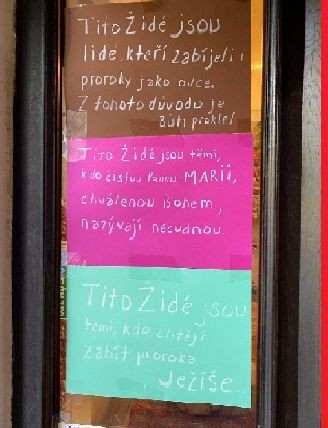 Tito Židé jsou
lidé, kteří zabíjeli i
proroky jako ovce.
Z tohoto důvodu je
Bůh proklel
Tito Židé jsou těmi,
kdo čistou Pannu MARII,
chválenou Bohem,
nazývají necudnou
Tito Židé jsou
těmi, kdo chtějí
zabít proroka
Ježíše